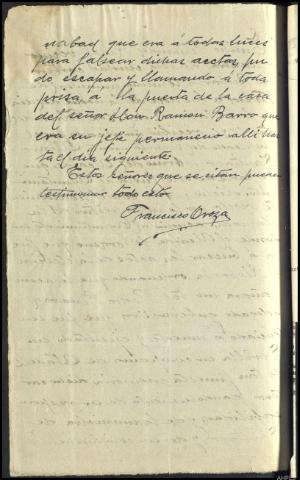 que era á todas luces
para falsear dichas actas pu-
do escapar y llamando á toda
prisa á la puerta de la casa
del señor Don Ramon Barro que
era su jefe permaneció alli has-
ta el dia siguiente
Estos señores que se citan pueden
testimoniar todo esto
Francisco Oroza